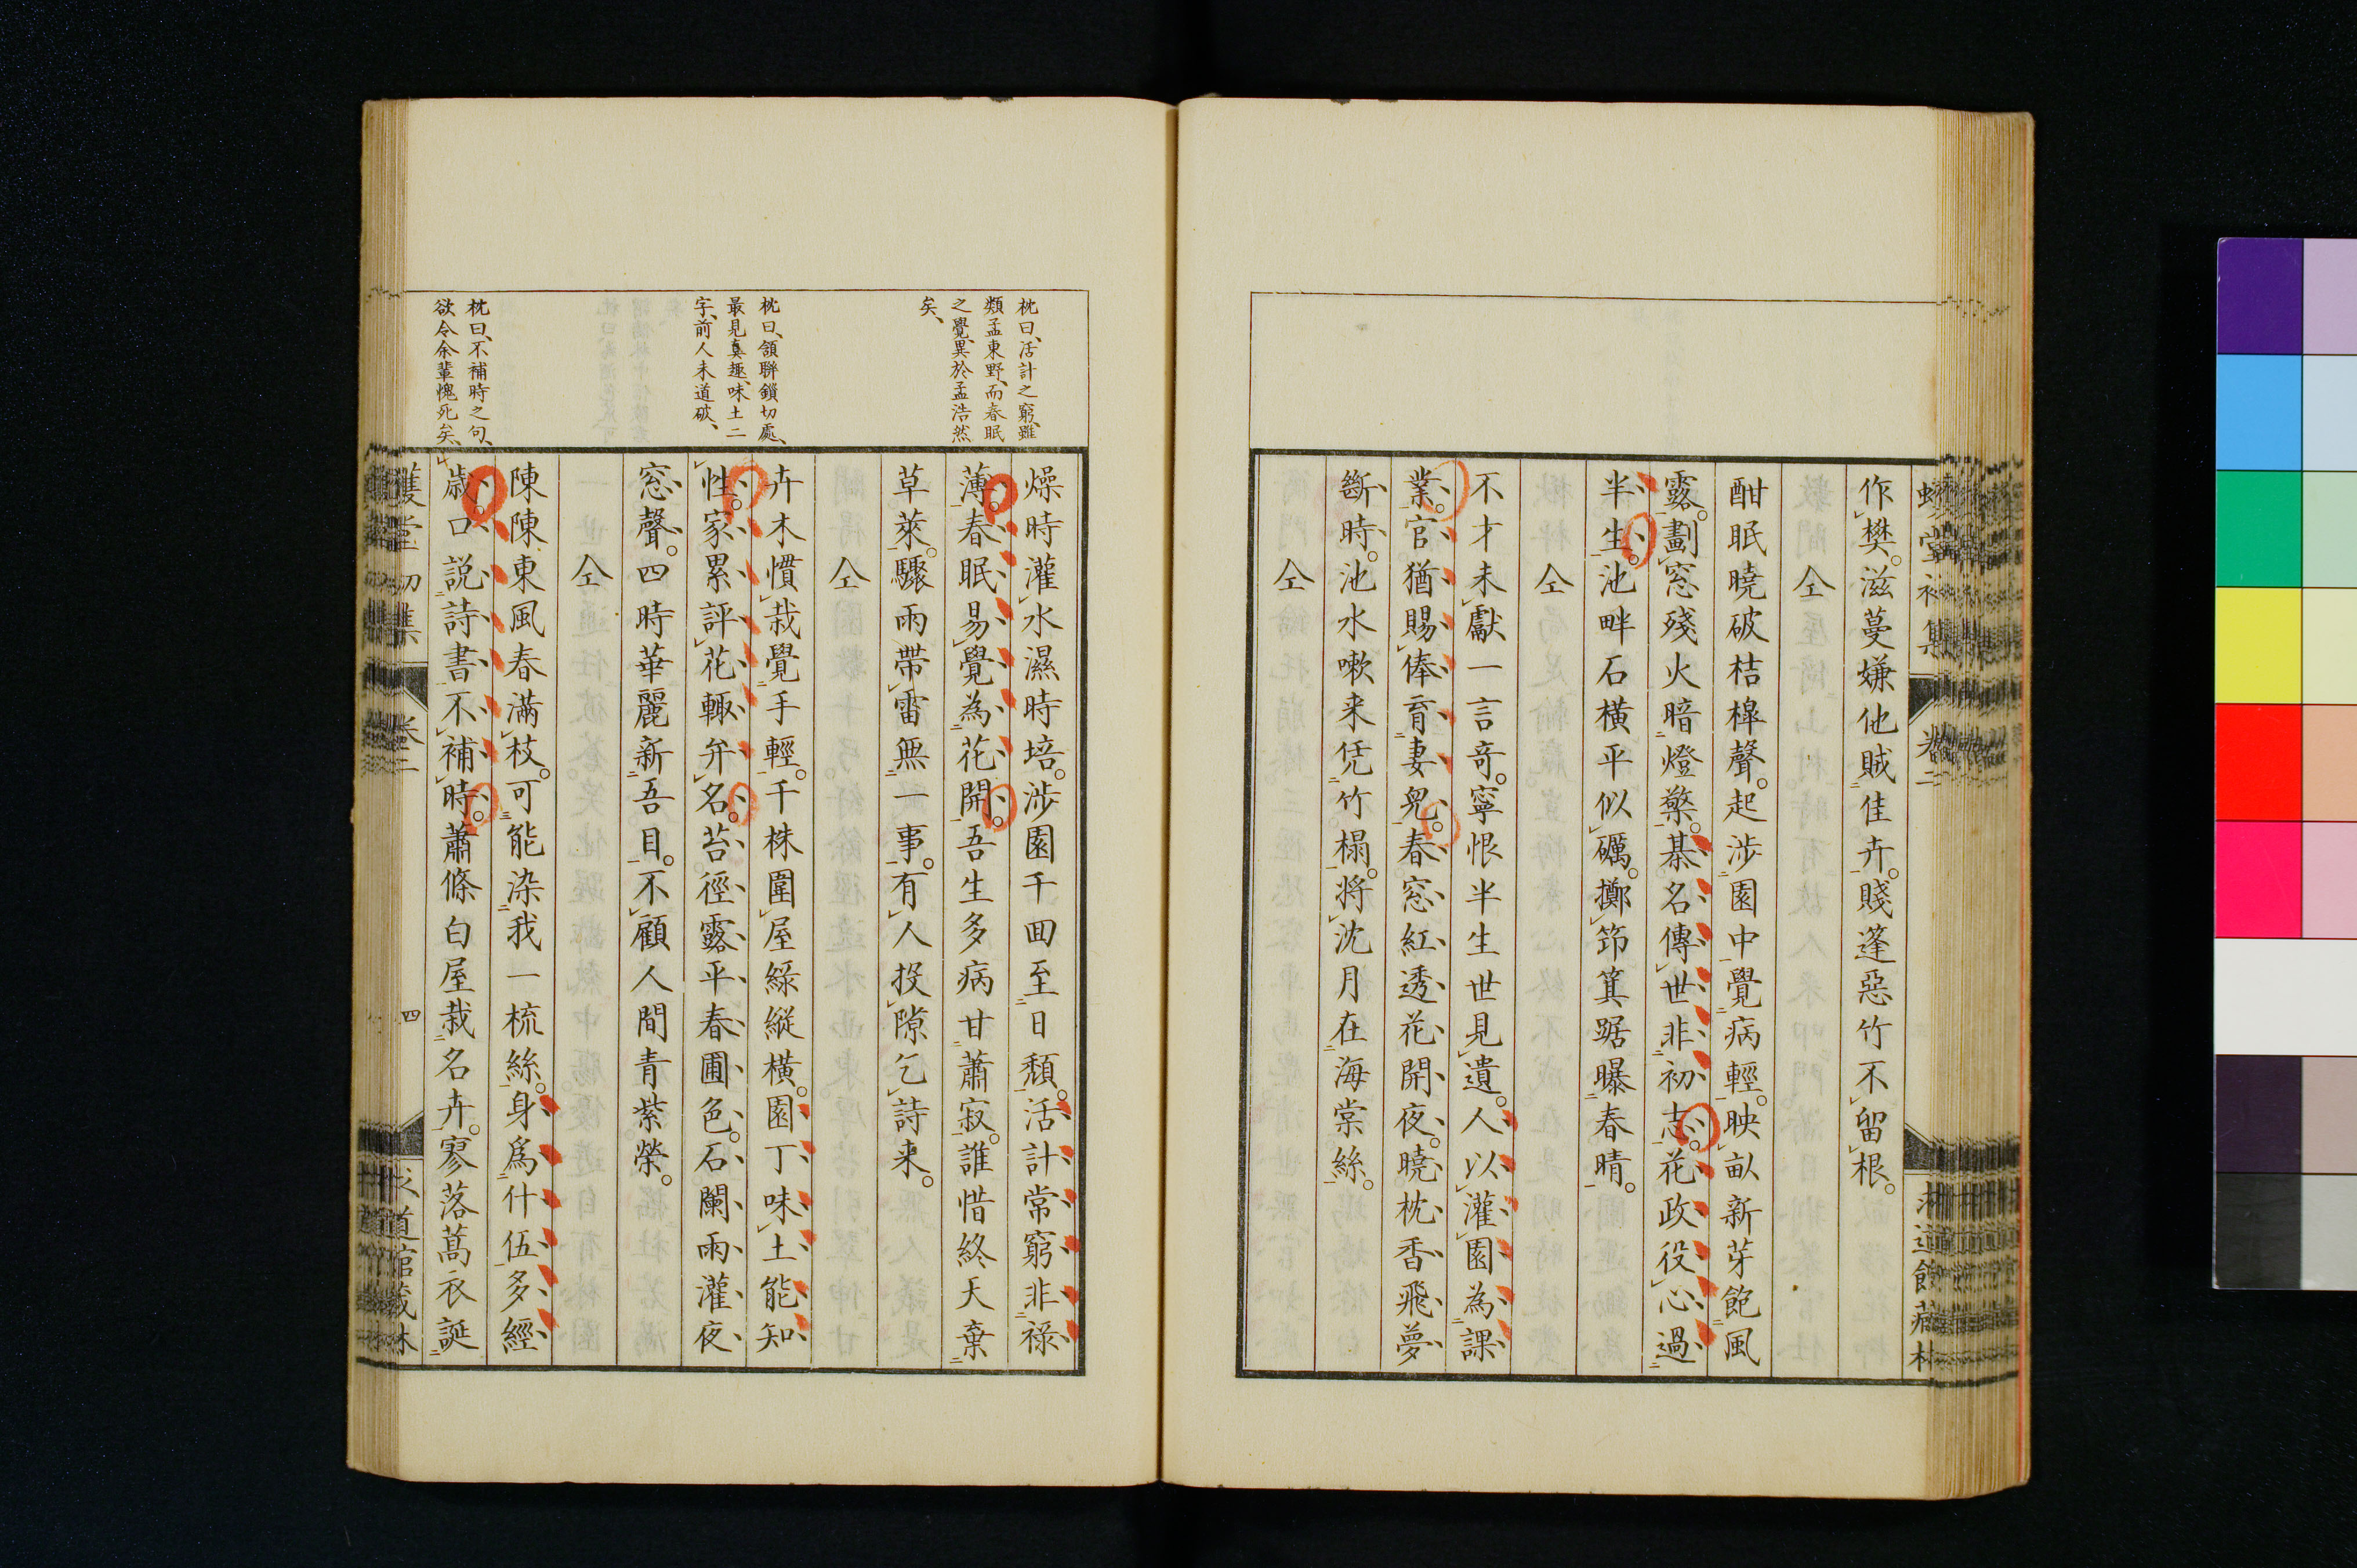 作樊。滋蔓嫌他賊佳卉。賤蓬惡竹不留根。
仝
酣眠曉破桔槹聲。起涉園中覺病輕。映畝新芽飽風
露。劃窓殘火暗燈檠。棊名傳世非初志。花政役心過
半生。池畔石橫平似礪。擲筇箕踞曝春晴。
仝
不才未獻一言奇。寧恨半生世見遺。人以灌園為課
業。官猶賜俸育妻兒。春窓紅透花開夜。曉枕香飛夢
斷時。池水嗽来凭竹榻。將沈月在海棠絲。
仝
枕曰、活計之窮、雖
類孟東野、而春眠
之覺、異於孟浩然
矣、
枕曰、頷聯鎻切處、
最見真趣、味土二
字、前人未道破、
枕曰、不補時之句、
欲令余輩愧死矣、
燥時灌水濕時培。涉園千回至日頽。活計常窮非祿
薄。春眠易覺為花開。吾生多病甘蕭寂。誰惜終天棄
草萊。驟雨帶雷無一事。有人投隙乞詩来。
仝
卉木慣栽覺手輕。千株圍屋綠縱橫。園丁味土能知
性。家累評花輙弁名。苔徑露平春圃色。石闌雨灌夜
窓聲。四時華麗新吾目。不顧人間青紫榮。
仝
陳陳東風春滿枝。可能染我一梳絲。身爲什伍多經
歳。口説詩書不補時。蕭條白屋栽名卉。寥落萵衣誕
卷二
四